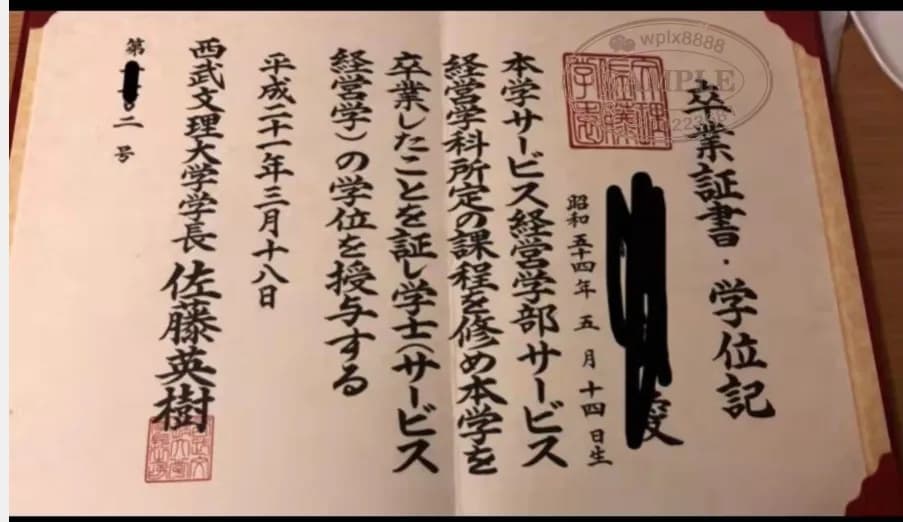 卒業証書・学位記
昭和五十四年五月十四日生
本学サービス経営学部サービス
経営学科所定の課程を修め本学を
卒業したことを証し学士(サービス
経営学)の学位を授与する
平成二十一年三月十八日
西武文理大学学長 佐藤英樹
第 二号
wplx8888